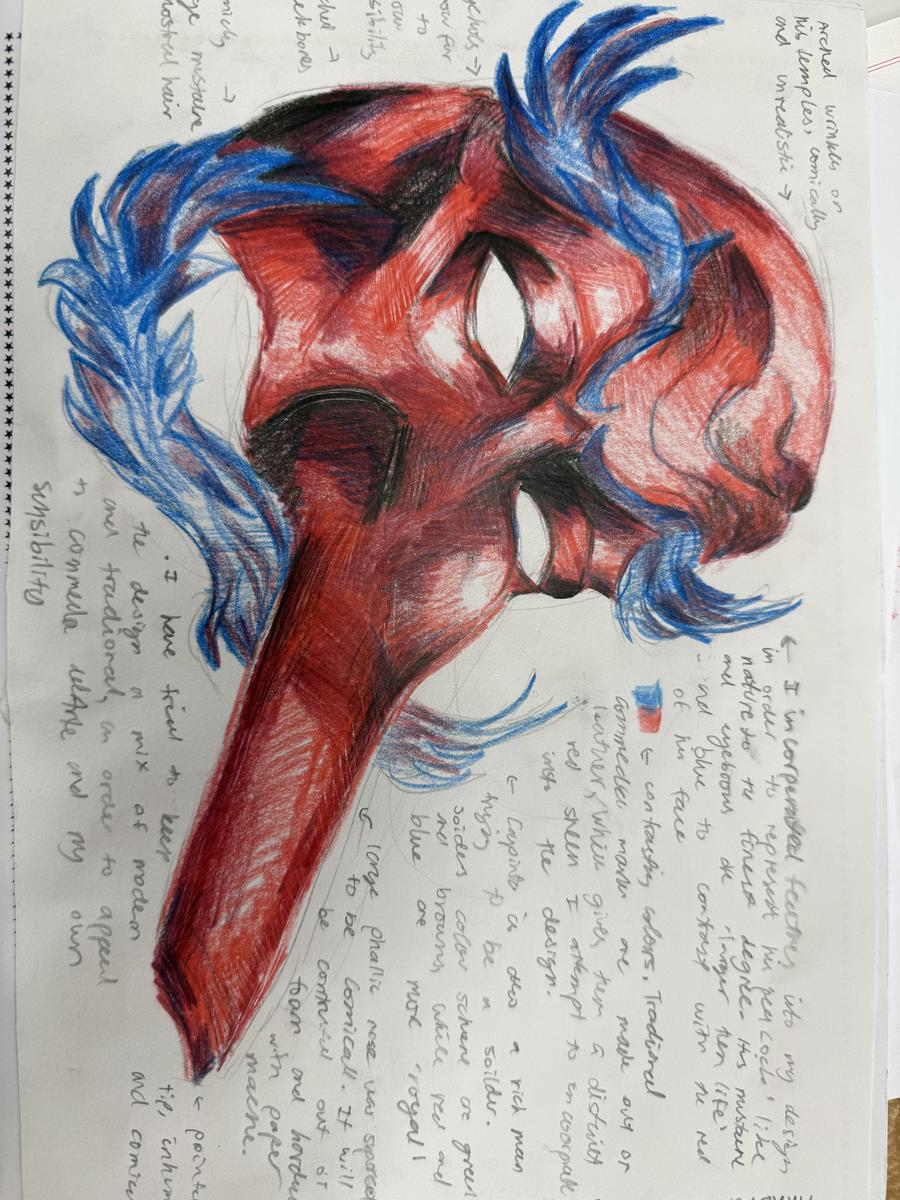 Arched wrinkles on
his temples, comically
and unrealistic →
→
→
mustache →
nostril hair
← I incorporated feathers into my design
in order to represent his peacock, like
nature to the finest degree. His mustache
and eyebrows are 'larger then life'
and blue to contrast with the red
of his face
← contrasting colors. Traditional
commedia masks are made out of
leather, which gives them a distinct
red sheen I attempt to incoopate
into the design.
← Capinto is also a rich man
trying to be a soilder.
Soilders color scheme are green
and browns, while red and
blue are more 'royal'
← large phallic nose was
to be comical. It will
be carved out of
foam and
with paper
mache.
←
tip,
and
• I have tried to keep
the design a mix of modern
and tradional, an order to appeal
to commedia and my own
sensibility